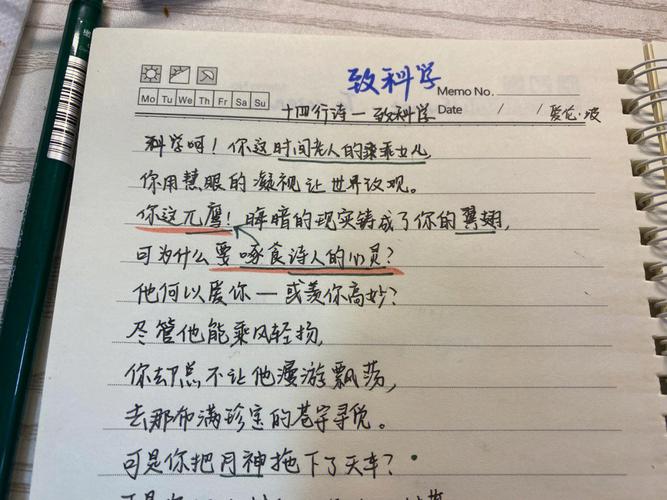 致科学
Memo No.
Mo Tu We Th Fr Sa Su
Date / /
十四行诗一致科学 爱伦·坡
科学啊！你这时间老人的乖乖女儿，
你用慧眼的凝视让世界改观。
你这兀鹰！晦暗的现实铸成了你的翼翅，
可为什么要啄食诗人的心灵？
他何以爱你一或羡你高妙？
尽管他能乘风轻扬，
你却总不让他漫游飘荡，
去那布满珍宝的苍穹寻觅。
可是你把月神拖下了天车？